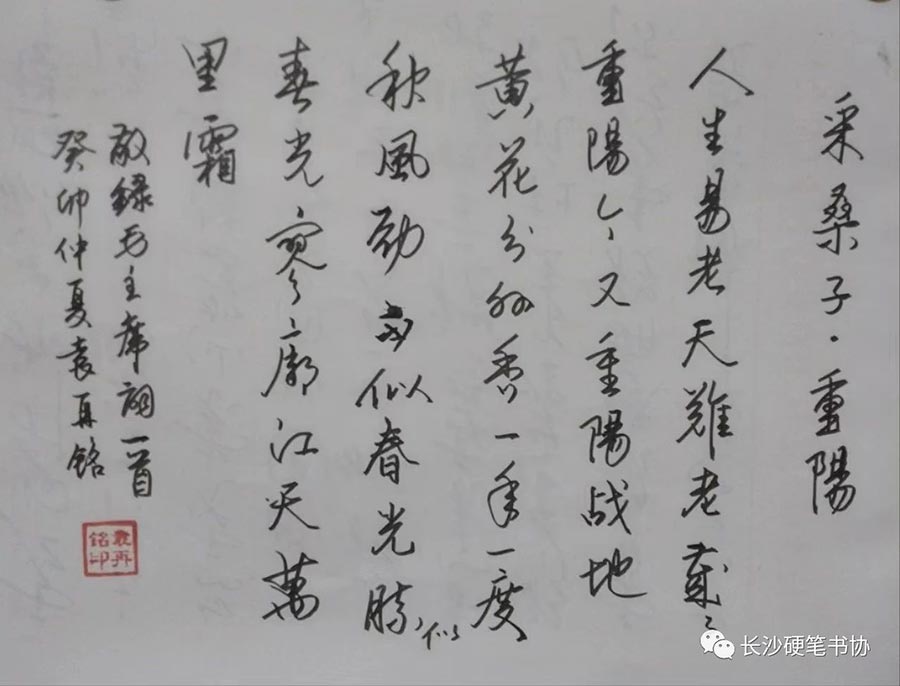 采桑子·重陽
人生易老天難老歲〻
重陽今又重陽战地
黄花分外香一年一度
秋風劲不似春光勝似
春光寥廓江天萬
里霜
敬錄毛主席詞一首
癸卯仲夏袁再銘
袁再
銘印
长沙硬笔书协